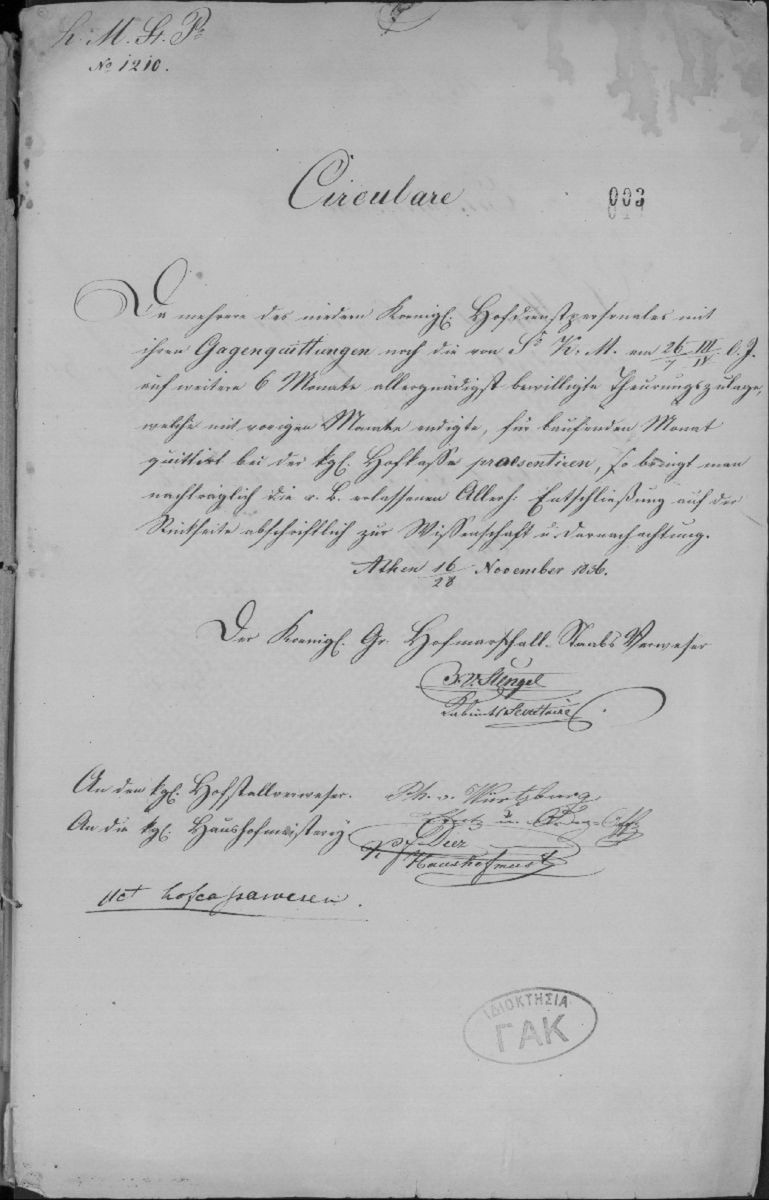 h. M. St. Pr
No 1210.
Circulare
003
Da mehrere des niedern Koenigl. Hofdienstpersonales mit
ihren Gagenquittungen noch die von Sr K. M. am 26/7 III/IV l. J.
auf weitere 6 Monate allergnädigst bewilligte Theurungszulage,
welche mit vorigen Monate endigte, für laufenden Monat
quittirt bei der kgl. Hofkasse praesentiren, so bringt man
nachträglich die s. Z. erlassenen Allerh. Entschließung auf der
Rückseite abschriftlich zur Wissenschaft u. Darnachachtung.
Athen 16/28 November 1836.
Der Koenigl. Gr. Hofmarschall-Staabs Verweser
v. Stengel
Kabinets Secretaire
An den kgl. Hofstallverweser. Ph. v. Würtzburg
An die kgl. Haushofmeisterey
Haushofmeist
act hofcassawesen.
ΙΔΙΟΚΤΗΣΙΑ
ΓΑΚ